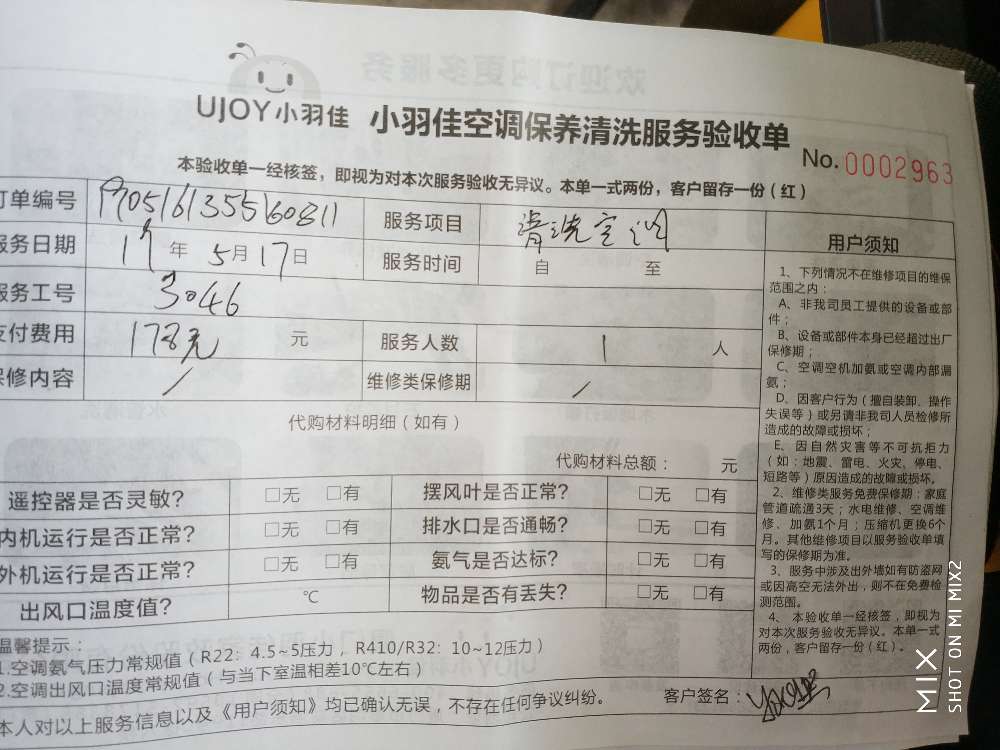 欢迎订购更多服务
UJOY小羽佳 小羽佳空调保养清洗服务验收单
No. 0002963
本验收单一经核签，即视为对本次服务验收无异议。本单一式两份，客户留存一份（红）
订单编号
服务项目 清洗空调
服务日期 17年 5月17日 服务时间 自 至
服务工号 3046
支付费用 178元 元 服务人数 1 人
保修内容 / 维修类保修期 /
代购材料明细（如有）
代购材料总额： 元
遥控器是否灵敏? □无 □有 摆风叶是否正常? □无 □有
内机运行是否正常? □无 □有 排水口是否通畅? □无 □有
外机运行是否正常? □无 □有 氨气是否达标? □无 □有
出风口温度值? ℃ 物品是否有丢失? □无 □有
温馨提示：
1.空调氨气压力常规值（R22：4.5~5压力，R410/R32：10~12压力）
2.空调出风口温度常规值（与当下室温相差10℃左右）
本人对以上服务信息以及《用户须知》均已确认无误，不存在任何争议纠纷。
客户签名：
用户须知
1、下列情况不在维修项目的维保
范围之内：
A、非我司员工提供的设备或部
件；
B、设备或部件本身已经超过出厂
保修期；
C、空调空机加氨或空调内部漏
氨；
D、因客户行为（擅自装卸、操作
失误等）或另请非我司人员检修所
造成的故障或损坏；
E、因自然灾害等不可抗拒力
（如：地震、雷电、火灾、停电、
短路等）原因造成的故障或损坏。
2、维修类服务免费保修期：家庭
管道疏通3天；水电维修、空调维
修、加氨1个月；压缩机更换6个
月。其他维修项目以服务验收单填
写的保修期为准。
3、服务中涉及出外墙如有防盗网
或因高空无法外出，则不在免费检
测范围。
4、本验收单一经核签，即视为
对本次服务验收无异议。本单一式
两份，客户留存一份（红）。
MIX SHOT ON MI MIX2